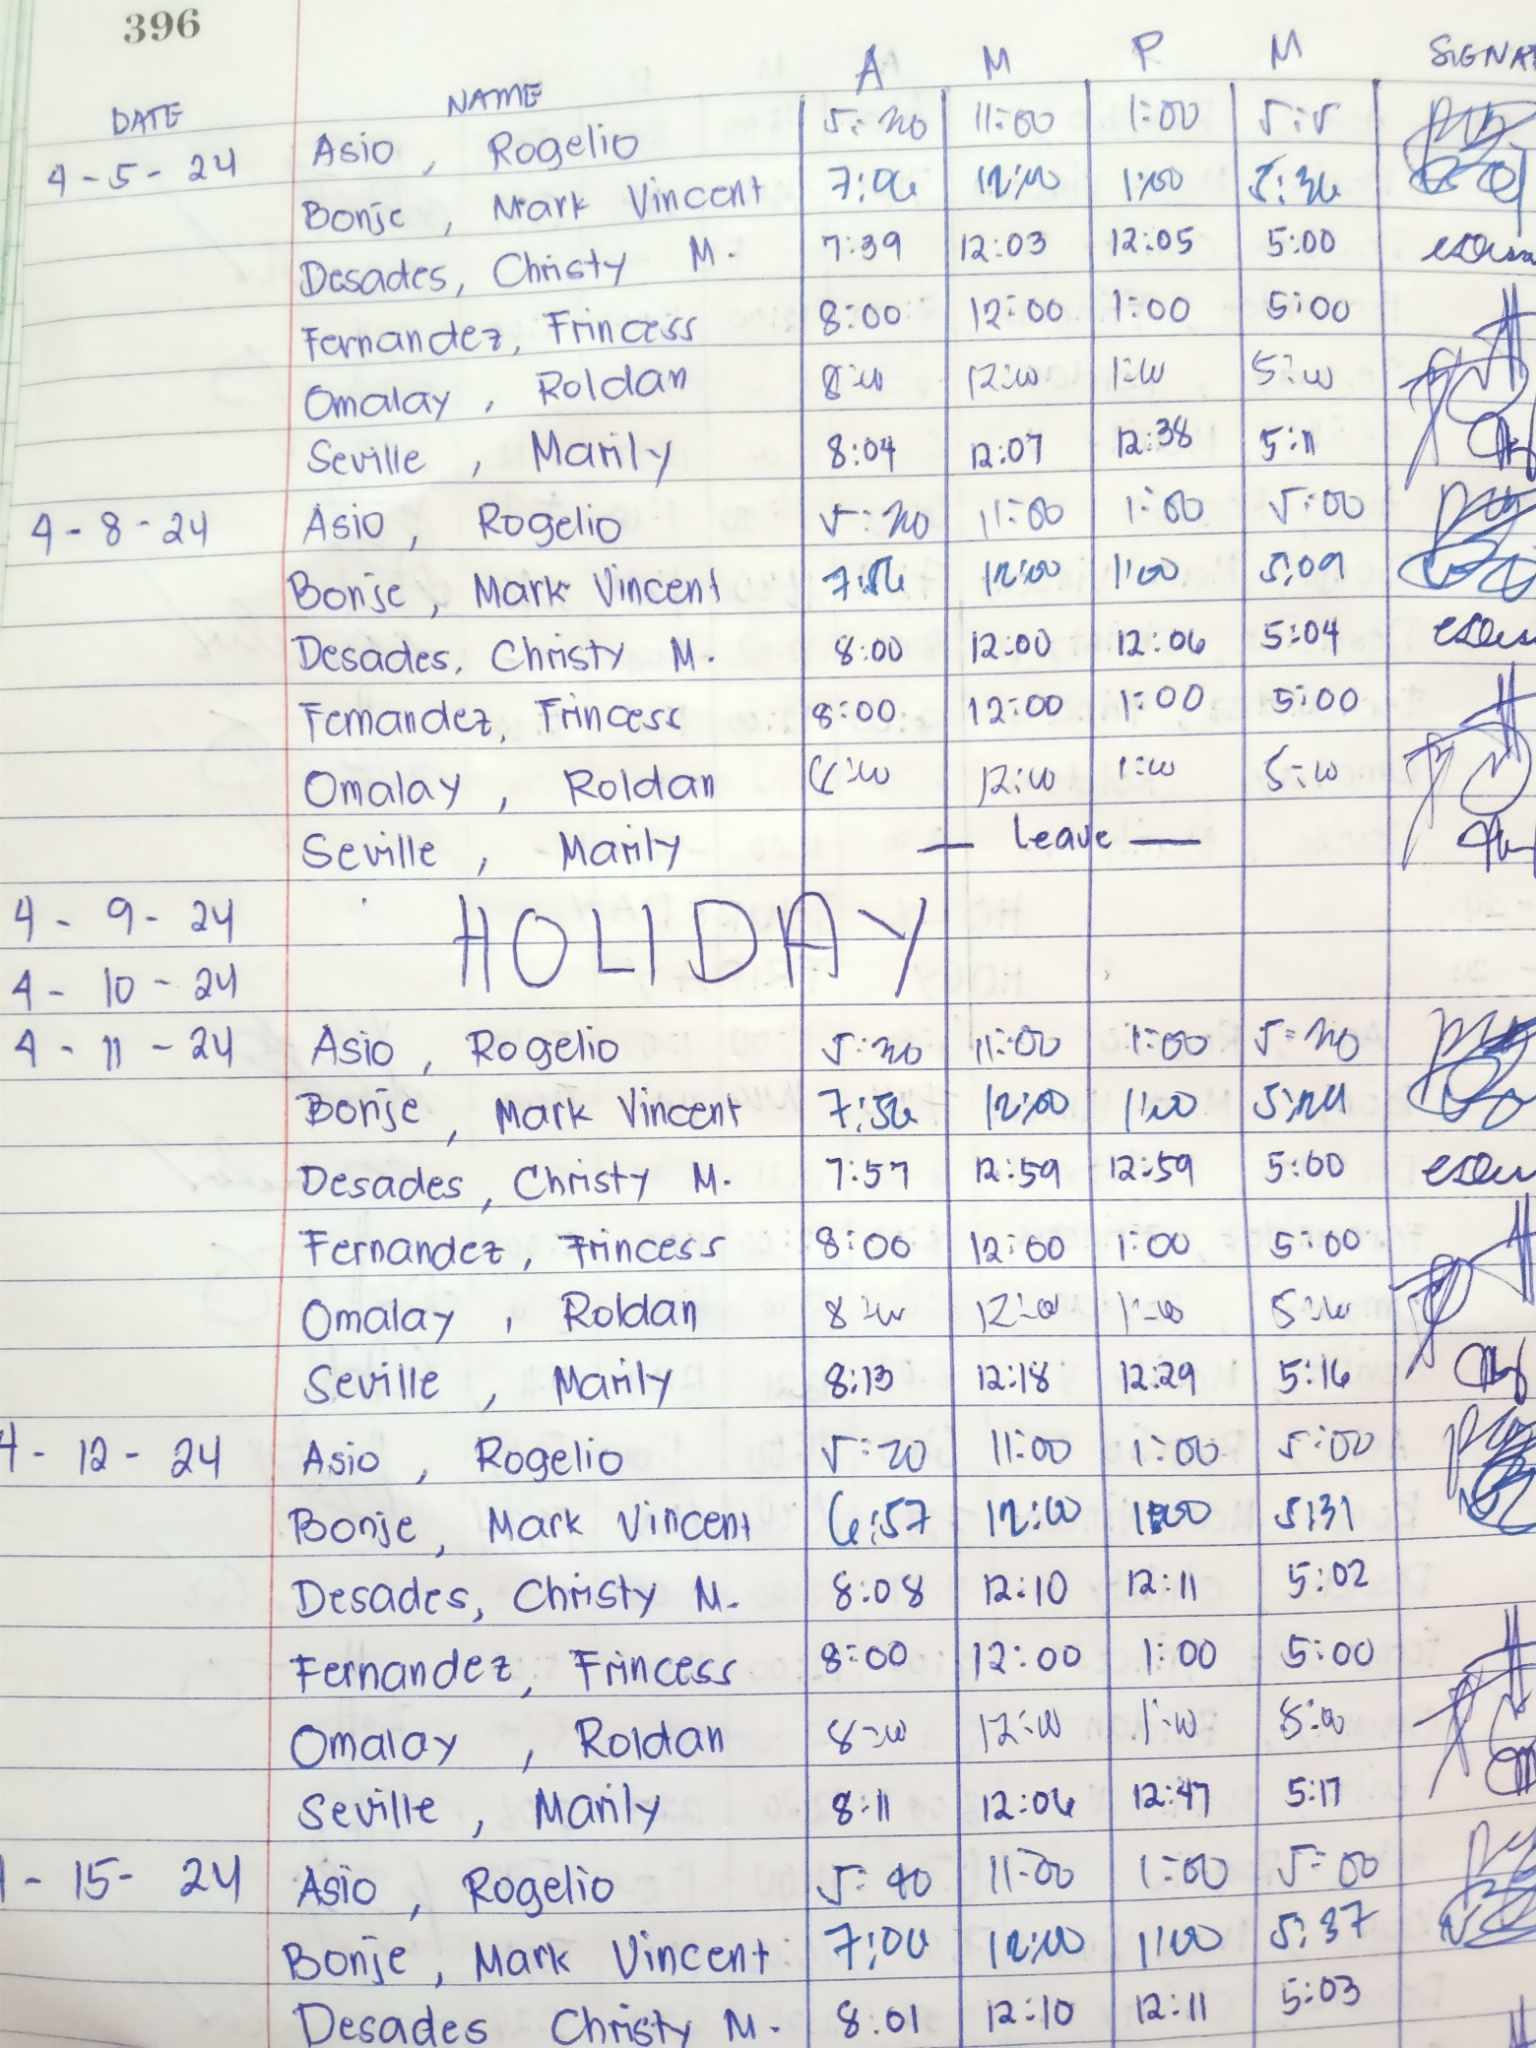 396
DATE NAME A M P M
4-5-24 Asio, Rogelio 5:20 11:00 1:00
Bonje, Mark Vincent 7:06 12:00 1:00 5:36
Desades, Christy M. 7:39 12:03 12:05 5:00
Fernandez, Frincess 8:00 12:00 1:00 5:00
Omalay, Roldan 8:00 12:00 1:00 5:00
Seville, Marily 8:04 12:07 12:38 5:11
4-8-24 Asio, Rogelio 5:20 11:00 1:00 5:00
Bonje, Mark Vincent 7:56 12:00 1:00 5:09
Desades, Christy M. 8:00 12:00 12:06 5:04
Fernandez, Frincess 8:00 12:00 1:00 5:00
Omalay, Roldan 12:00 1:00 5:00
Seville, Marily — Leave —
4-9-24 HOLIDAY
4-10-24
4-11-24 Asio, Rogelio 5:20 11:00 1:00 5:20
Bonje, Mark Vincent 7:56 12:00 1:00
Desades, Christy M. 7:57 12:59 12:59 5:00
Fernandez, Frincess 8:00 12:00 1:00 5:00
Omalay, Roldan 8:00 12:00 1:00 5:00
Seville, Marily 8:13 12:18 12:29 5:16
4-12-24 Asio, Rogelio 5:20 11:00 1:00 5:00
Bonje, Mark Vincent 6:57 12:00 1:00 5:31
Desades, Christy M. 8:08 12:10 12:11 5:02
Fernandez, Frincess 8:00 12:00 1:00 5:00
Omalay, Roldan 8:00 12:00 1:00 5:00
Seville, Marily 8:11 12:06 12:47 5:17
-15-24 Asio, Rogelio 5:40 11:00 1:00 5:00
Bonje, Mark Vincent 7:06 12:00 1:00 5:37
Desades Christy M. 8:01 12:10 12:11 5:03